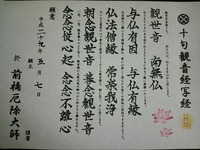 十句観音経写経
観世音 南無仏
与仏有因 与仏有縁
仏法僧縁 常楽我浄
朝念観世音 暮念観世音
念念従心起 念念不離心
願意
平成二十九年 五月 七日
願主
於 前橋厄除大師